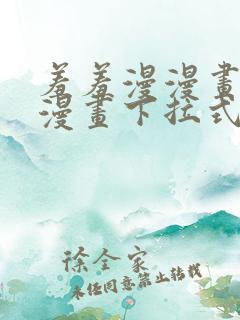 羞羞漫漫畫
漫畫下拉式
徐全家
未经同意禁止转载